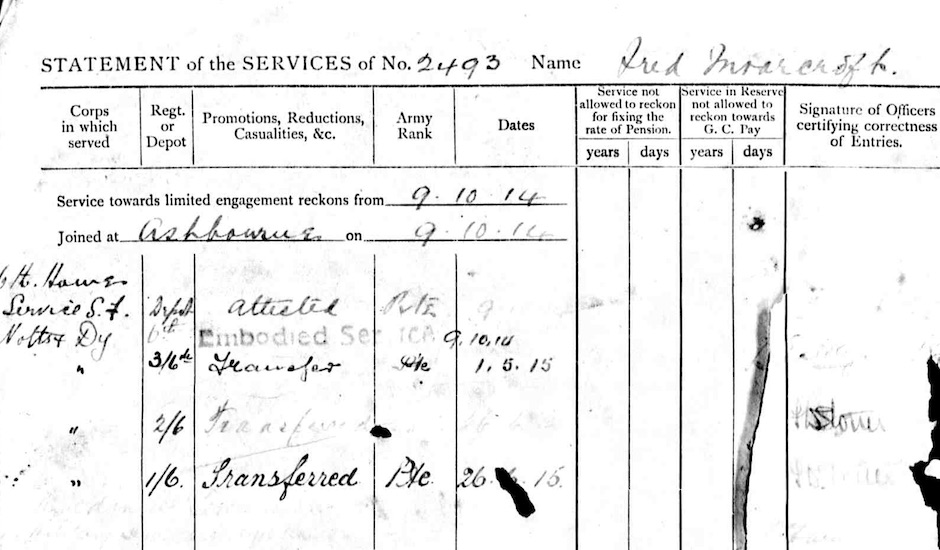 STATEMENT of the SERVICES of No. 2493 Name Fred Moorcroft.
Corps in which served
Regt. or Depot
Promotions, Reductions, Casualities, &c.
Army Rank
Dates
Service not allowed to reckon for fixing the rate of Pension.
years days
Service in Reserve not allowed to reckon towards G. C. Pay
years days
Signature of Officers certifying correctness of Entries.
Service towards limited engagement reckons from 9.10.14
Joined at Ashbourne on 9.10.14
6th. Home
Service S.F. Depot Attested Pte 9
Notts & Dy 6th Embodied Ser 9.10.14
" 3/6th Transfer Pte 1.5.15
" 2/6 Transferred
" 1/6. Transferred Pte 26 15.